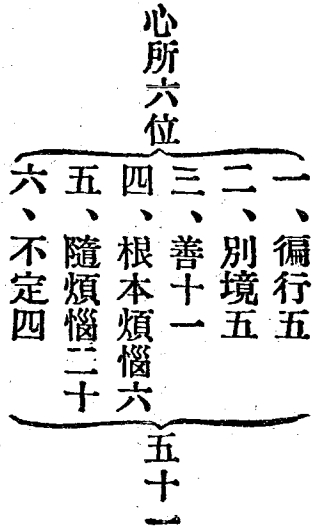 心所六位
一、徧行五
二、別境五
三、善十一
四、根本煩惱六
五、隨煩惱二十
六、不定四
五十一